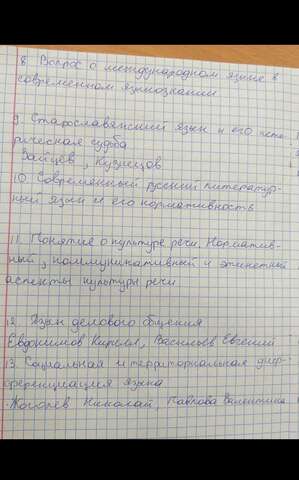 8. Вопрос о международном языке в
современном языкознании
9. Старославянский язык и его исто-
рическая судьба
Зайцев, Кузнецов
10. Современный русский литератур-
ный язык и его нормативность
11. Понятие о культуре речи. Норматив-
ный, коммуникативный и этический
аспекты культуры речи
12. Язык делового общения
Евдокимов Кирилл, Васильев Евгений
13. Социальная и территориальная диф-
ференциация языка
Николай, Павлова Валентина